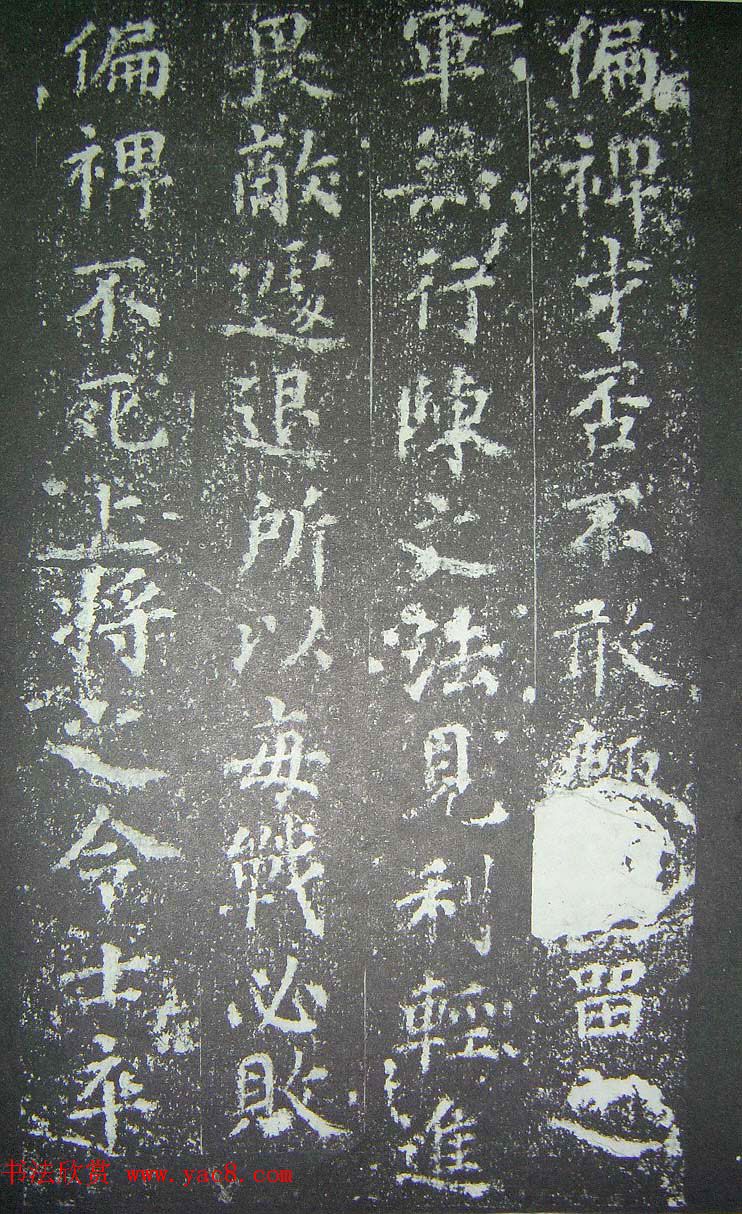 偏裨才否不敢留也
軍無行陳之法見利輕進
畏敵遽退所以每戰必敗
偏裨不死上將之令士卒
书法欣赏 www.yac8.com